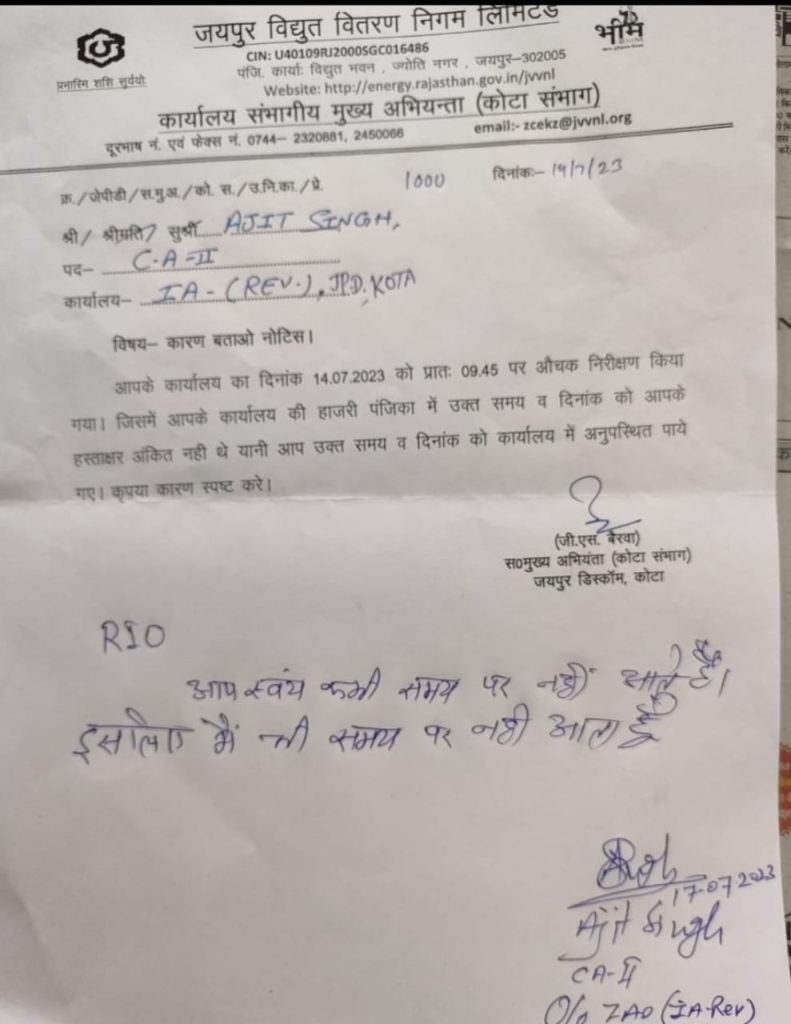 जयपुर विद्युत वितरण निगम लिमिटेड
CIN: U40109RJ2000SGC016486
पंजि. कार्याः विद्युत भवन , ज्योति नगर , जयपुर–302005
Website: http://energy.rajasthan.gov.in/jvvnl
कार्यालय संभागीय मुख्य अभियन्ता (कोटा संभाग)
दूरभाष नं. एवं फेक्स नं. 0744– 2320881, 2450066 email:- zcekz@jvvnl.org
प्रभास्मि शशि सुर्ययो
भीम
क्र./जेपीडी/स.मु.अ./को. स./उ.नि.का./प्रे. 1000 दिनांकः– 14/7/23
श्री/ श्रीमति/ सुश्री AJIT SINGH,
पद– C.A-II
कार्यालय– IA-(REV.), JPD, KOTA
विषय– कारण बताओ नोटिस।
आपके कार्यालय का दिनांक 14.07.2023 को प्रातः 09.45 पर औचक निरीक्षण किया
गया। जिसमें आपके कार्यालय की हाजरी पंजिका में उक्त समय व दिनांक को आपके
हस्ताक्षर अंकित नही थे यानी आप उक्त समय व दिनांक को कार्यालय में अनुपस्थित पाये
गए। कृपया कारण स्पष्ट करे।
(जी.एस. बैरवा)
स०मुख्य अभियंता (कोटा संभाग)
जयपुर डिस्कॉम, कोटा
RIO
आप स्वंय कभी समय पर नहीं आते हैं।
इसलिए मैं भी समय पर नही आता हूँ
17-07-2023
Ajit Singh
CA-II
O/o ZAO (IA-Rev)